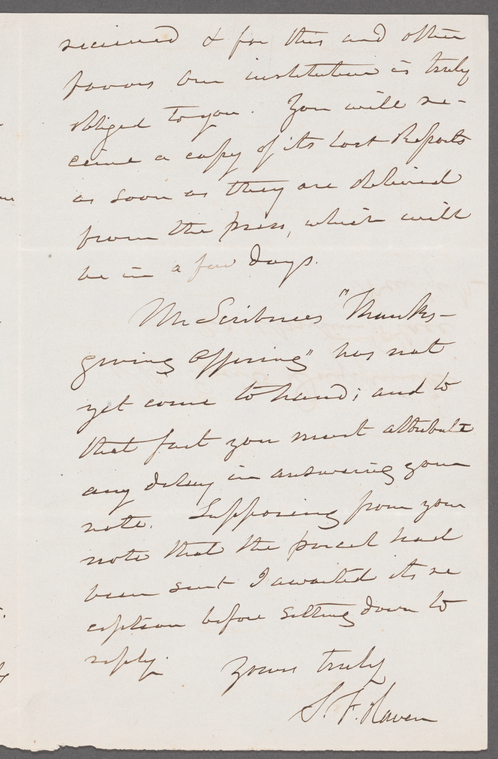 received & for this and other
favors our institution is truly
obliged to you. You will re-
ceive a copy of its last Reports
as soon as they are delivered
from the press, which will
be in a few days.
Mr Scribners "Thanks-
giving Offering" has not
yet come to hand; and to
that fact you must attribute
any delay in answering your
note. Supposing from your
note that the parcel had
been sent I awaited its re
ception before sitting down to
reply.
Yours truly
S. F. Haven